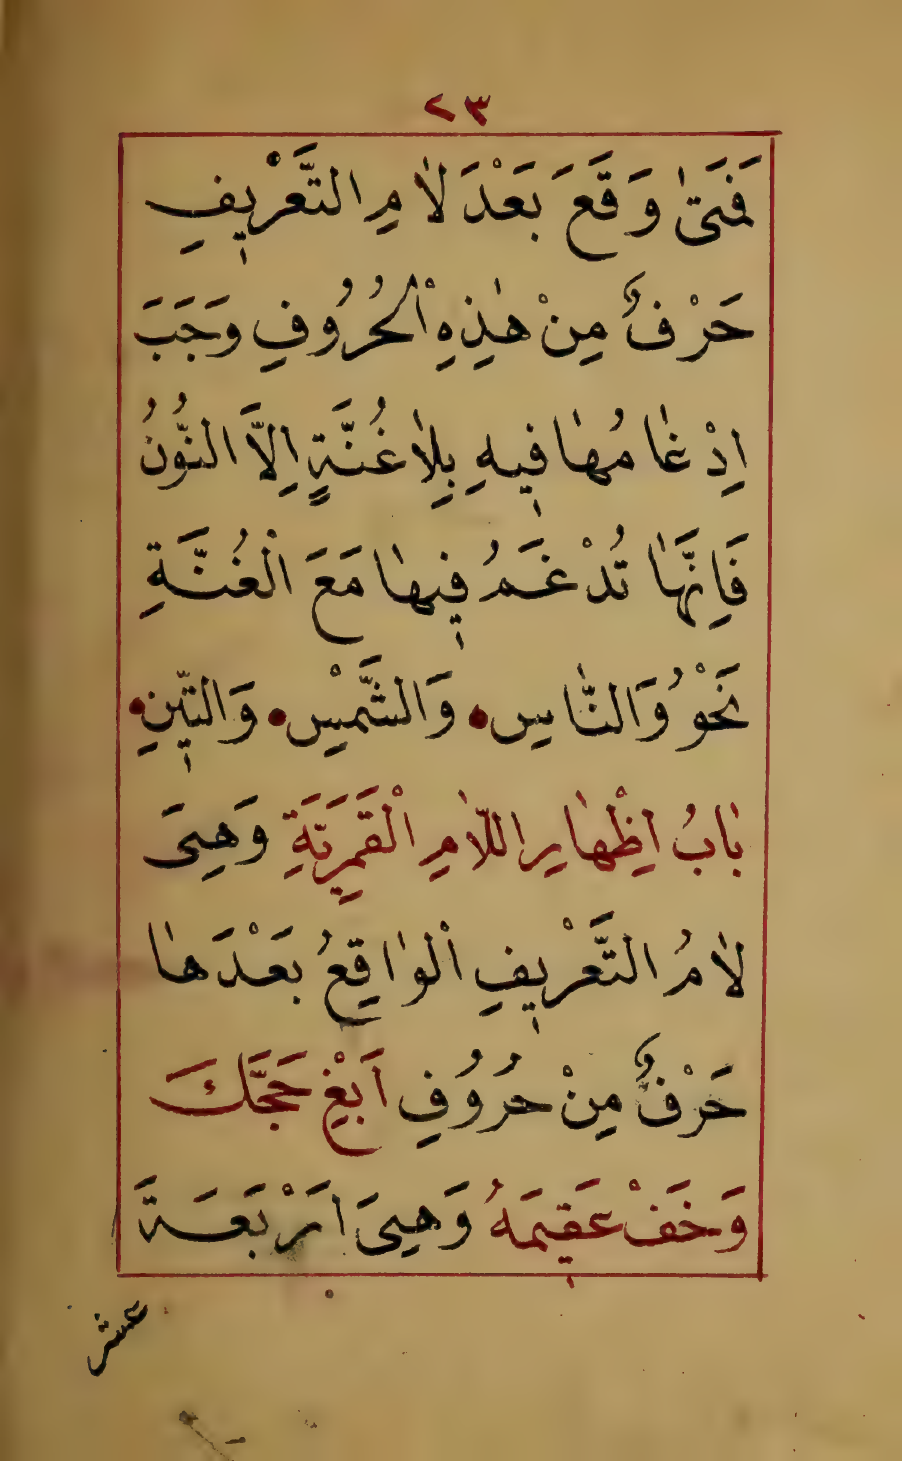 ٢٣
فَمَتٰى وَقَعَ بَعْدَ لَامِ التَّعْرٖيفِ
حَرْفٌ مِنْ هٰذِهِ الْحُرُوفِ وَجَبَ
اِدْغٰامُهٰا فٖيهِ بِلٰا غُنَّةٍ اِلَّا النُّونُ
فَاِنَّهٰا تُدْغَمُ فٖيهٰا مَعَ الْغُنَّةِ
نَحْوُ وَالنّٰاسِ وَالشَّمْسِ وَالتّٖينِ
بٰابُ اِظْهٰارِ اللّٰامِ الْقَمَرِيَّةِ وَهِىَ
لٰامُ التَّعْرٖيفِ الْوٰاقِعُ بَعْدَهٰا
حَرْفٌ مِنْ حُرُوفِ اَبْغِ حَجَّكَ
وَخَفْ عَقٖيمَهُ وَهِىَ اَرْبَعَةَ
عشر